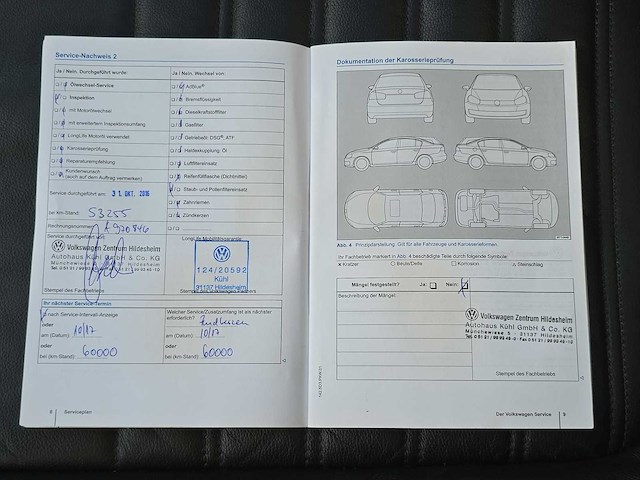 Service-Nachweis 2
Ja / Nein. Durchgeführt wurde:
Ölwechsel-Service
Inspektion
mit Motorölwechsel
mit erweitertem Inspektionsumfang
LongLife-Motoröl verwendet
Karosserieprüfung
Reparaturempfehlung
Kundenwunsch
(auch auf dem Auftrag vermerken)
Service durchgeführt am: 31. OKT. 2016
bei km-Stand: 53255
Rechnungsnummer: 
Service durchgeführt von:
Volkswagen Zentrum Hildesheim
Autohaus Kühl GmbH & Co. KG
Stempel des Fachbetriebs
Ja / Nein. Wechsel von:
AdBlue®
Bremsflüssigkeit
Dieselkraftstofffilter
Gasfilter
Getriebeöl: DSG®, ATF
Haldexkupplung: Öl
Luftfiltereinsatz
Reifenfüllflasche (Dichtmittel)
Staub- und Pollenfiltereinsatz
Zahnriemen
Zündkerzen
LongLife Mobilitätsgarantie:
124/20592
Kühl
31137 Hildesheim
Stempel des Volkswagen Partners
Ihr nächster Service-Termin
nach Service-Intervall-Anzeige
oder
am (Datum): 10/17
oder
bei (km-Stand): 60000
Welcher Service/Zusatzumfang ist als nächster
erforderlich?
am (Datum): 10/17
oder
bei (km-Stand): 60000
8 Serviceplan
Dokumentation der Karosserieprüfung
Abb. 4 Prinzipdarstellung. Gilt für alle Fahrzeuge und Karosserieformen.
Ihr Fachbetrieb markiert in Abb. 4 beschädigte Teile durch folgende Symbole:
× Kratzer ○ Beule/Delle □ Korrosion △ Steinschlag
Mängel festgestellt? Ja: Nein:
Beschreibung der Mängel:
Volkswagen Zentrum Hildesheim
Autohaus Kühl GmbH & Co. KG
Münchewiese 5 - 31137 Hildesheim
Stempel des Fachbetriebs
Der Volkswagen Service 9